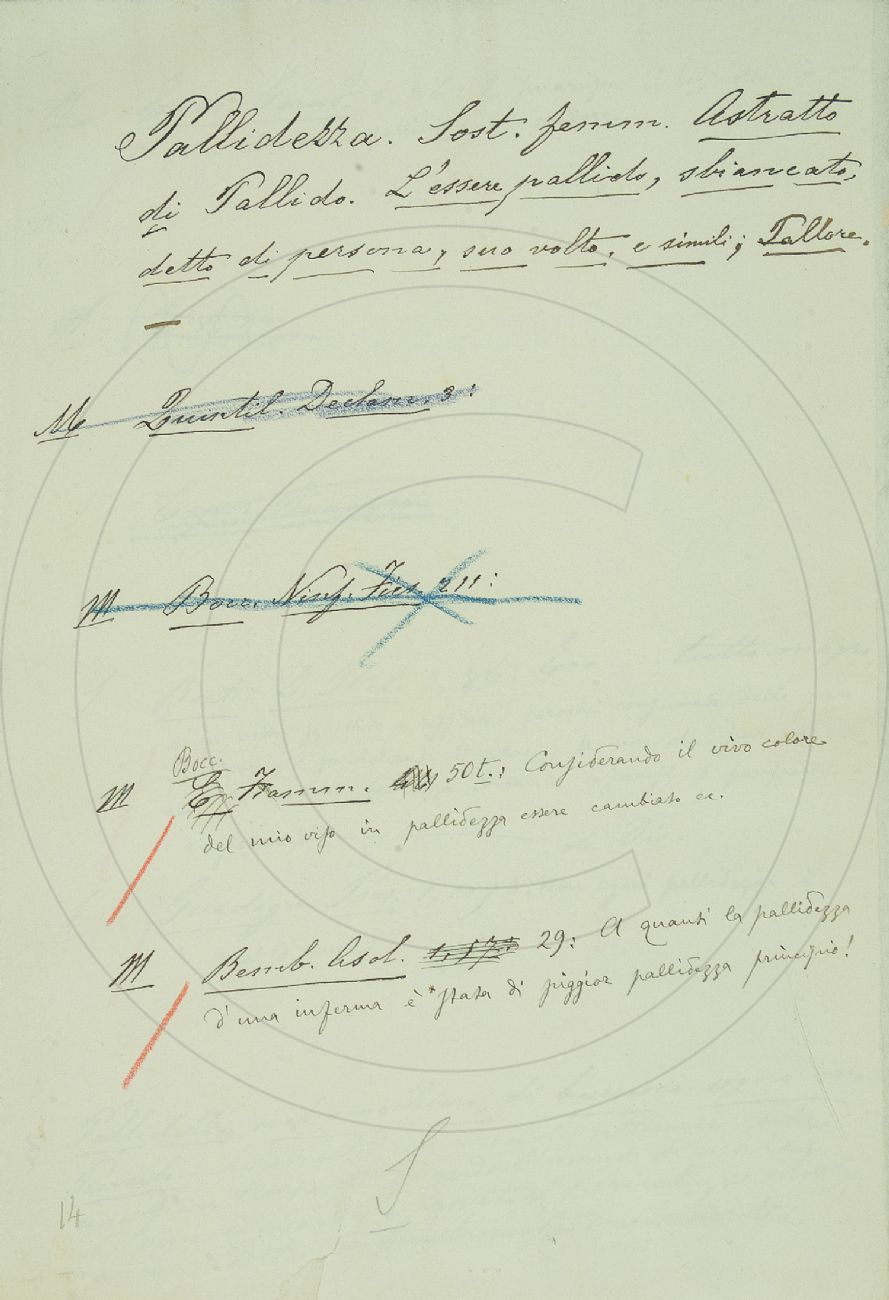 Pallidezza. Sost. femm. Astratto
di Pallido. L'essere pallido, sbiancato,
detto di persona, suo volto, e simili; Pallore.
—
M Quintil. Declam. 3:
M Bocc. Ninf. Fies. 211:
Bocc.
M Fiamm. 50t.: Considerando il vivo colore
del mio viso in pallidezza essere cambiato ec.
M Bemb. Asol. 29: A quanti la pallidezza
d'una inferma è stata di piggior pallidezza principio!
S
14